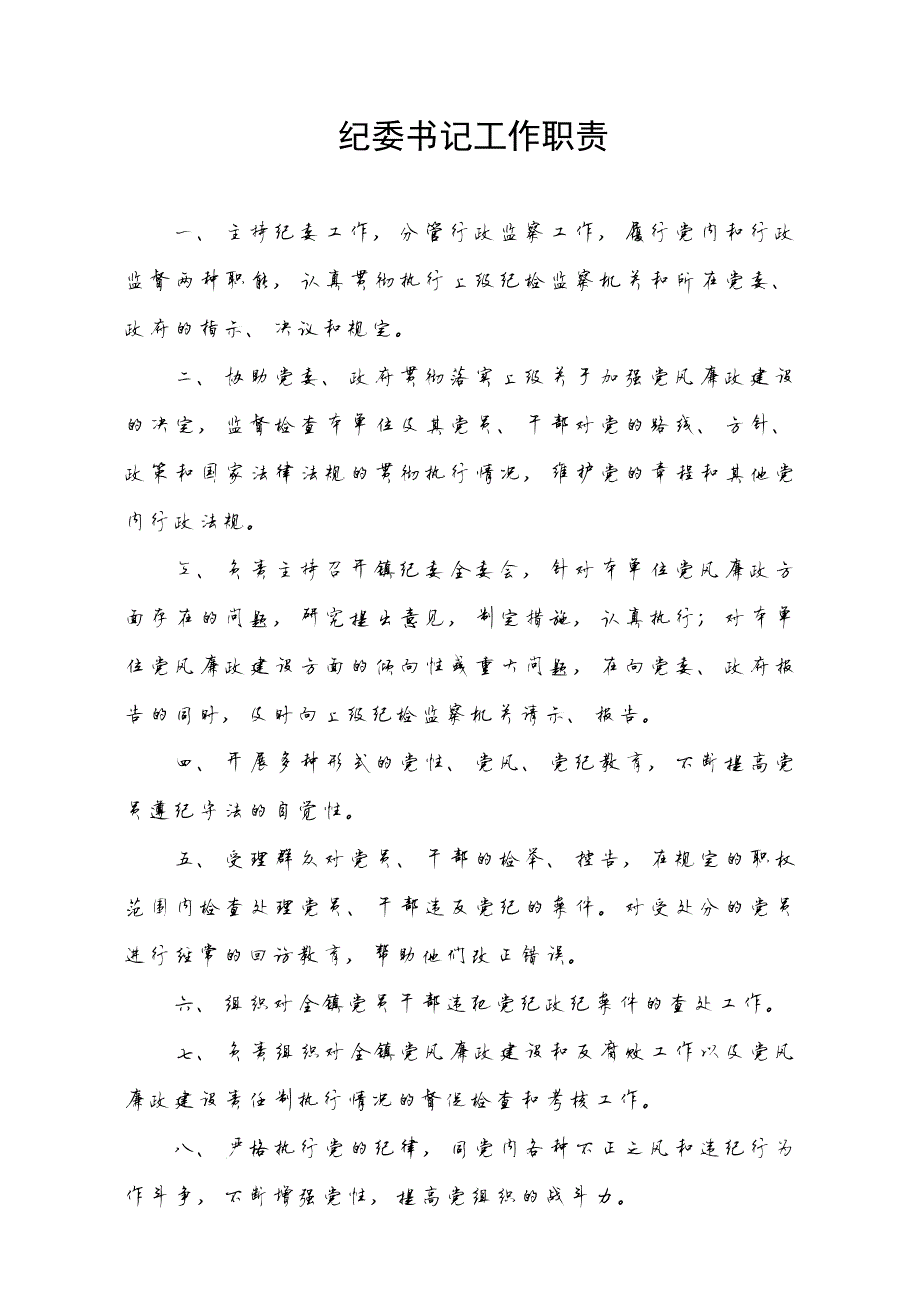 纪委书记工作职责
一、主持纪委工作，分管行政监察工作，履行党内和行政
监督两种职能，认真贯彻执行上级纪检监察机关和所在党委、
政府的指示、决议和规定。
二、协助党委、政府贯彻落实上级关于加强党风廉政建设
的决定，监督检查本单位及其党员、干部对党的路线、方针、
政策和国家法律法规的贯彻执行情况，维护党的章程和其他党
内行政法规。
三、负责主持召开镇纪委全委会，针对本单位党风廉政方
面存在的问题，研究提出意见，制定措施，认真执行；对本单
位党风廉政建设方面的倾向性或重大问题，在向党委、政府报
告的同时，及时向上级纪检监察机关请示、报告。
四、开展多种形式的党性、党风、党纪教育，不断提高党
员遵纪守法的自觉性。
五、受理群众对党员、干部的检举、控告，在规定的职权
范围内检查处理党员、干部违反党纪的案件。对受处分的党员
进行经常的回访教育，帮助他们改正错误。
六、组织对全镇党员干部违犯党纪政纪案件的查处工作。
七、负责组织对全镇党风廉政建设和反腐败工作以及党风
廉政建设责任制执行情况的督促检查和考核工作。
八、严格执行党的纪律，同党内各种不正之风和违纪行为
作斗争，不断增强党性，提高党组织的战斗力。